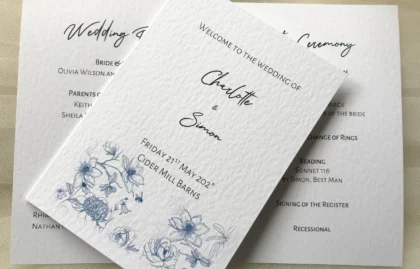 Wedding
Bride &
Olivia Wilson an
Parents
Keith
Sheila
Rhia
Nathan
Welcome to the wedding of
Charlotte
&
Simon
Friday 21st May 202
Cider Mill Barns
Ceremony
of the bride
change of Rings
Reading
Sonnet 116
Simon, Best Man
Signing of the Register
Recessional